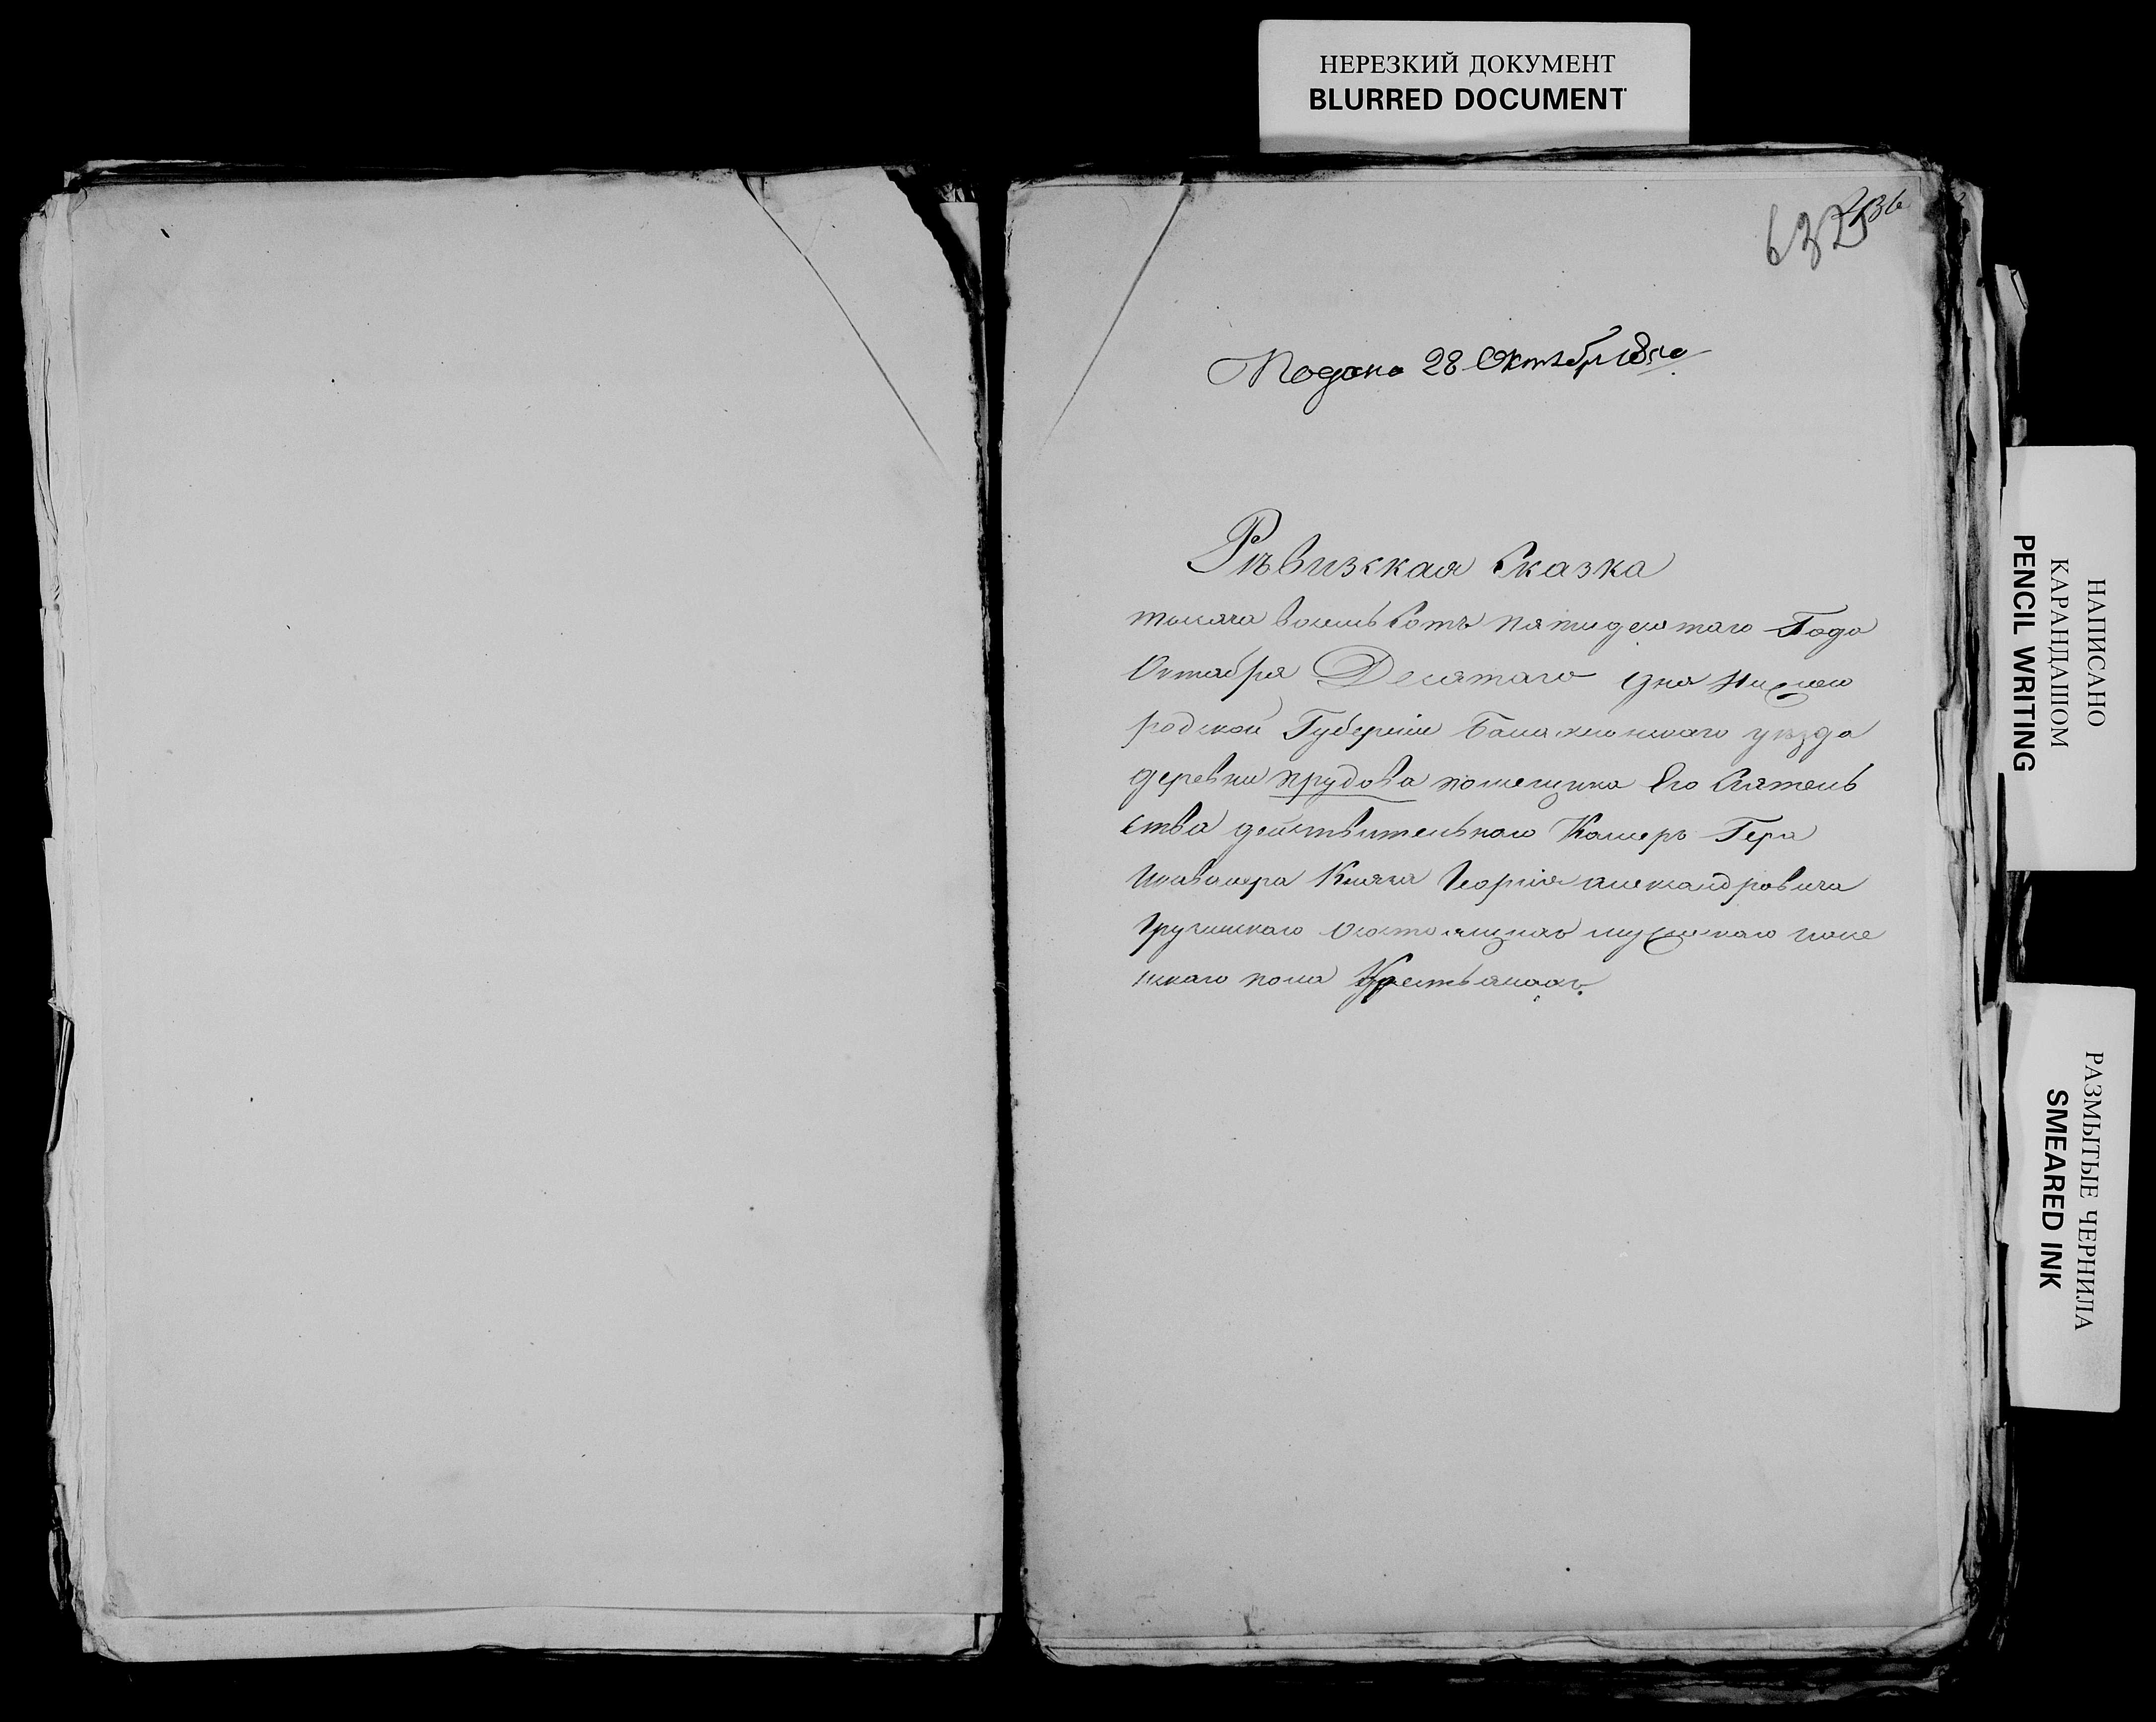 НЕРЕЗКИЙ ДОКУМЕНТ
BLURRED DOCUMENT
632
Подано 28 Октября 1850
Рѣвизская Сказка
тысяча восемь Сотъ пятидесятаго Года
Октября Десятаго дня Нижего
родской Губернии Балахнинскаго уѣзда
деревни прудова помещика Его Сиятель
ства действительнаго Камеръ Гера
Икавалера Князя Георгия александровича
Грузинскаго Осостоящихъ мужескаго иже
нскаго пола Крестьянахъ.
НАПИСАНО
КАРАНДАШОМ
PENCIL WRITING
РАЗМЫТЫЕ ЧЕРНИЛА
SMEARED INK